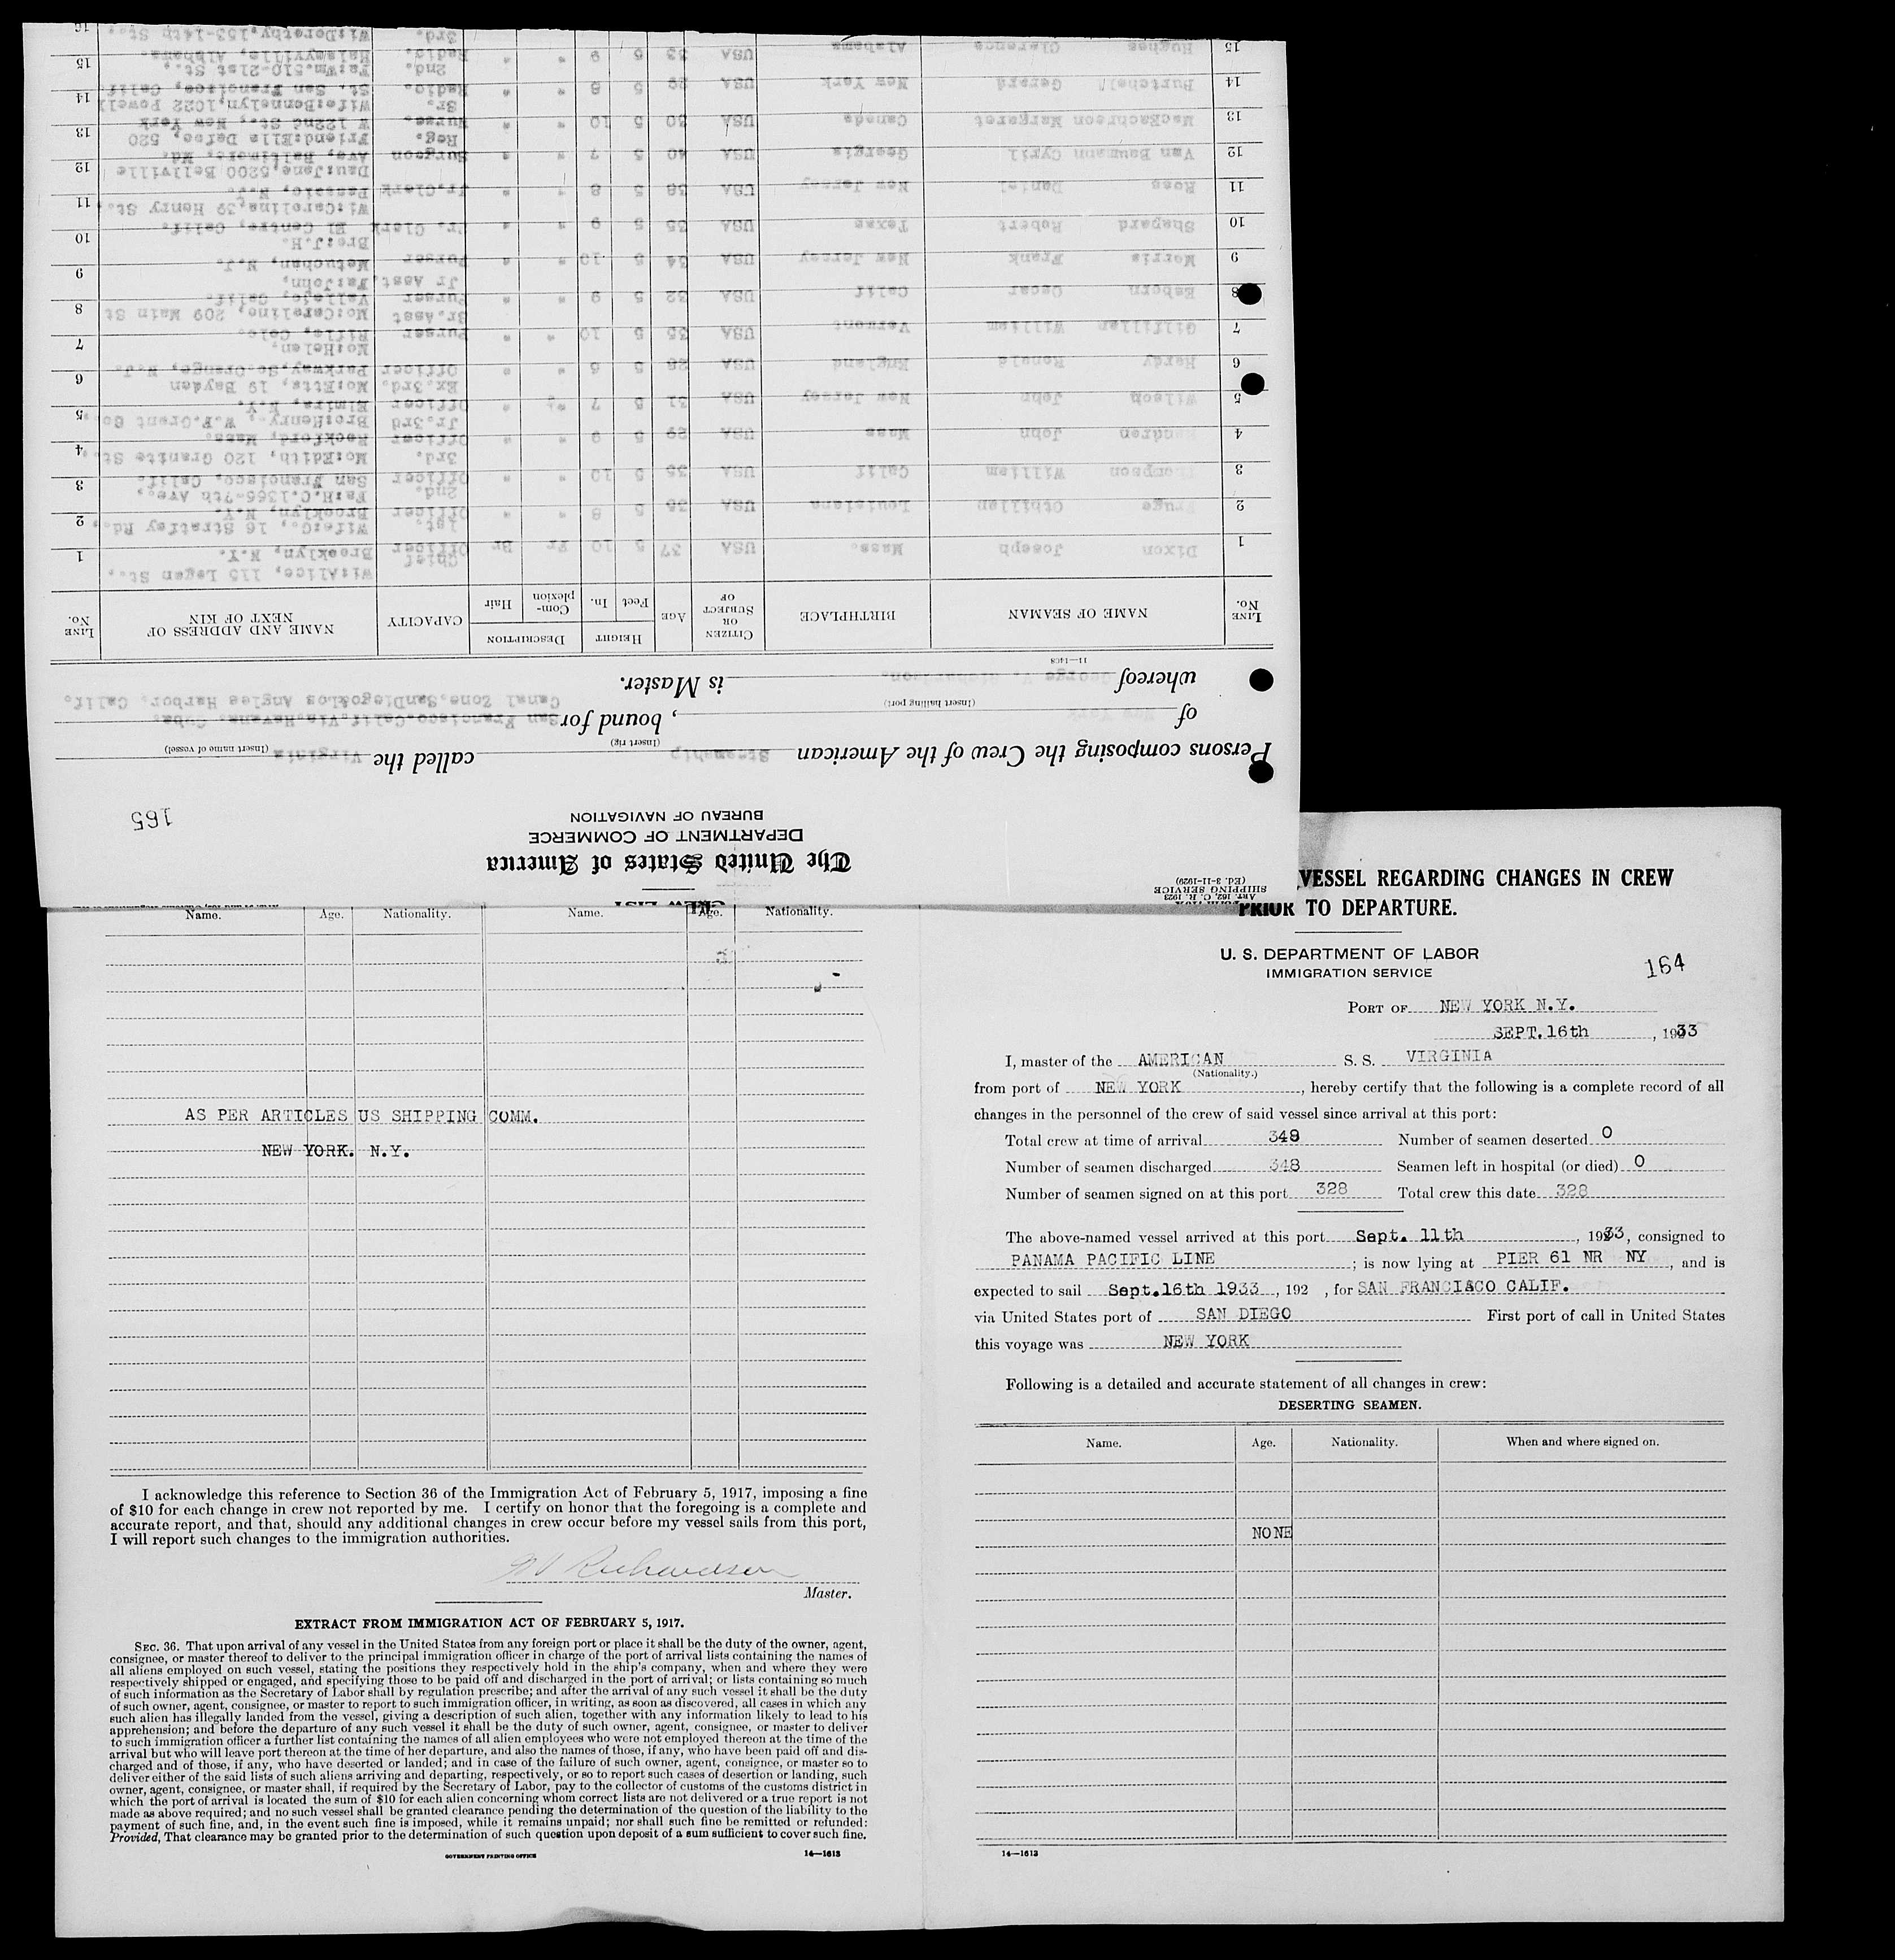 CREW LIST
ART. 162, C. R. 1923
SHIPPING SERVICE
(Ed. 3-11-1929)
The United States of America
DEPARTMENT OF COMMERCE
BUREAU OF NAVIGATION
165
Persons composing the Crew of the American Steamship called the Virginia
(Insert rig) (Insert name of vessel)
of New York , bound for San Francisco.Calif.Via.Havana. Cuba.
(Insert hailing port) Canal Zone.SanDiego&Los Angles Harbor. Calif.
whereof George V. Richardson. is Master.
11—1408
LINE No. NAME OF SEAMAN BIRTHPLACE CITIZEN OR SUBJECT OF AGE HEIGHT Feet In. DESCRIPTION Complexion Hair CAPACITY NAME AND ADDRESS OF NEXT OF KIN LINE No.
Chief Wi:Alice, 115 Logan St.,
1 Dixon Joseph Mass. USA 37 5 10 Fr Br Officer Brooklyn, N.Y. 1
1st. Wife:G., 16 Stratfey Rd.,
2 Fruge Othillen Louisiana USA 38 5 8 " " Officer Brooklyn, N.Y. 2
2nd. Fa:H.C.1366-7th Ave.,
3 Thompson William Calif USA 35 5 10 " " Officer San Francisco, Calif. 3
3rd. Mo:Edith, 120 Granite St.,
4 John Mass USA 29 5 9 " " Officer Rockford, Mass. 4
Jr.3rd Bro:Henry-, W.F.Grant Co.,
5 Wilson John New Jersey USA 31 5 7 " " Officer Elmira, N.Y. 5
Ex.3rd. Mo:Etta, 19 Bayden
6 Hardy Ronald England USA 28 5 6 " " Officer Parkway,So.Orange, N.J. 6
Mo:Helen,
7 Gilfillan William Vermont USA 35 5 10 " " Purser Rifle, Colo. 7
Sr.Asst Mo:Caroline, 209 Main St
8 Esborn Oscar Calif USA 32 5 9 " " Purser Vallejo, Calif. 8
Jr Asst. Fa:John,
9 Morris Frank New Jersey USA 34 5 10 " " Purser Metuchan, N.J. 9
Bro:J.H.
10 Shepard Robert Texas USA 35 5 9 " " Sr. Clerk El Centro, Calif. 10
Wi:Carolina,39 Henry St.,
11 Ross Daniel New Jersey USA 38 5 8 " " Jr.Clerk Passaic, N.J. 11
Dau:Jane,5200 Bellville
12 Van Baumann Cyril Georgia USA 40 5 7 " " Surgeon Ave, Baltimore, Md. 12
Reg. Friend:Ella Defoe, 520
13 MacEachreon Margaret Canada USA 30 5 10 " " Nurse. W 122nd St., New York 13
Sr. Wife:Bennelyn,1022 Powell
14 Burtchell Gerard New York USA 29 5 8 " " Radio. St. San Francisco, Calif. 14
2nd. Fa:Wm.510-21st St.,
15 Hughes Clarence Alabama USA 33 5 9 " " Radio. Haleyville, Alabama. 15
3rd. Wi:Dorothy,153-14th St., 16
Name. Age. Nationality. Name. Age. Nationality.
AS PER ARTICLES US SHIPPING COMM.
NEW YORK. N.Y.
I acknowledge this reference to Section 36 of the Immigration Act of February 5, 1917, imposing a fine
of $10 for each change in crew not reported by me. I certify on honor that the foregoing is a complete and
accurate report, and that, should any additional changes in crew occur before my vessel sails from this port,
I will report such changes to the immigration authorities.
Richardson
Master.
EXTRACT FROM IMMIGRATION ACT OF FEBRUARY 5, 1917.
SEC. 36. That upon arrival of any vessel in the United States from any foreign port or place it shall be the duty of the owner, agent,
consignee, or master thereof to deliver to the principal immigration officer in charge of the port of arrival lists containing the names of
all aliens employed on such vessel, stating the positions they respectively hold in the ship's company, when and where they were
respectively shipped or engaged, and specifying those to be paid off and discharged in the port of arrival; or lists containing so much
of such information as the Secretary of Labor shall by regulation prescribe; and after the arrival of any such vessel it shall be the duty
of such owner, agent, consignee, or master to report to such immigration officer, in writing, as soon as discovered, all cases in which any
such alien has illegally landed from the vessel, giving a description of such alien, together with any information likely to lead to his
apprehension; and before the departure of any such vessel it shall be the duty of such owner, agent, consignee, or master to deliver
to such immigration officer a further list containing the names of all alien employees who were not employed thereon at the time of the
arrival but who will leave port thereon at the time of her departure, and also the names of those, if any, who have been paid off and dis-
charged and of those, if any, who have deserted or landed; and in case of the failure of such owner, agent, consignee, or master so to
deliver either of the said lists of such aliens arriving and departing, respectively, or so to report such cases of desertion or landing, such
owner, agent, consignee, or master shall, if required by the Secretary of Labor, pay to the collector of customs of the customs district in
which the port of arrival is located the sum of $10 for each alien concerning whom correct lists are not delivered or a true report is not
made as above required; and no such vessel shall be granted clearance pending the determination of the question of the liability to the
payment of such fine, and, in the event such fine is imposed, while it remains unpaid; nor shall such fine be remitted or refunded:
Provided, That clearance may be granted prior to the determination of such question upon deposit of a sum sufficient to cover such fine.
GOVERNMENT PRINTING OFFICE 14—1613
VESSEL REGARDING CHANGES IN CREW
PRIOR TO DEPARTURE.
U. S. DEPARTMENT OF LABOR
IMMIGRATION SERVICE
164
PORT OF NEW YORK N.Y.
SEPT.16th , 1933
I, master of the AMERICAN S. S. VIRGINIA
(Nationality.)
from port of NEW YORK , hereby certify that the following is a complete record of all
changes in the personnel of the crew of said vessel since arrival at this port:
Total crew at time of arrival 348 Number of seamen deserted 0
Number of seamen discharged 348 Seamen left in hospital (or died) 0
Number of seamen signed on at this port 328 Total crew this date 328
The above-named vessel arrived at this port Sept. 11th , 1933, consigned to
PANAMA PACIFIC LINE ; is now lying at PIER 61 NR NY , and is
expected to sail Sept.16th 1933 , 192 , for SAN FRANCISCO CALIF.
via United States port of SAN DIEGO First port of call in United States
this voyage was NEW YORK
Following is a detailed and accurate statement of all changes in crew:
DESERTING SEAMEN.
Name. Age. Nationality. When and where signed on.
NONE
14—1613